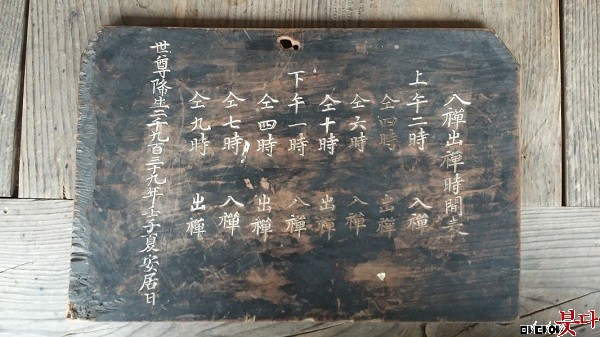 入禪出禪時間表
上午二時 入禪
仝四時 出禪
仝六時 入禪
仝十時 出禪
下午一時 入禪
仝四時 出禪
仝七時 入禪
仝九時 出禪
世尊降生二千九百三十九年壬子夏安居日
미디어붓다